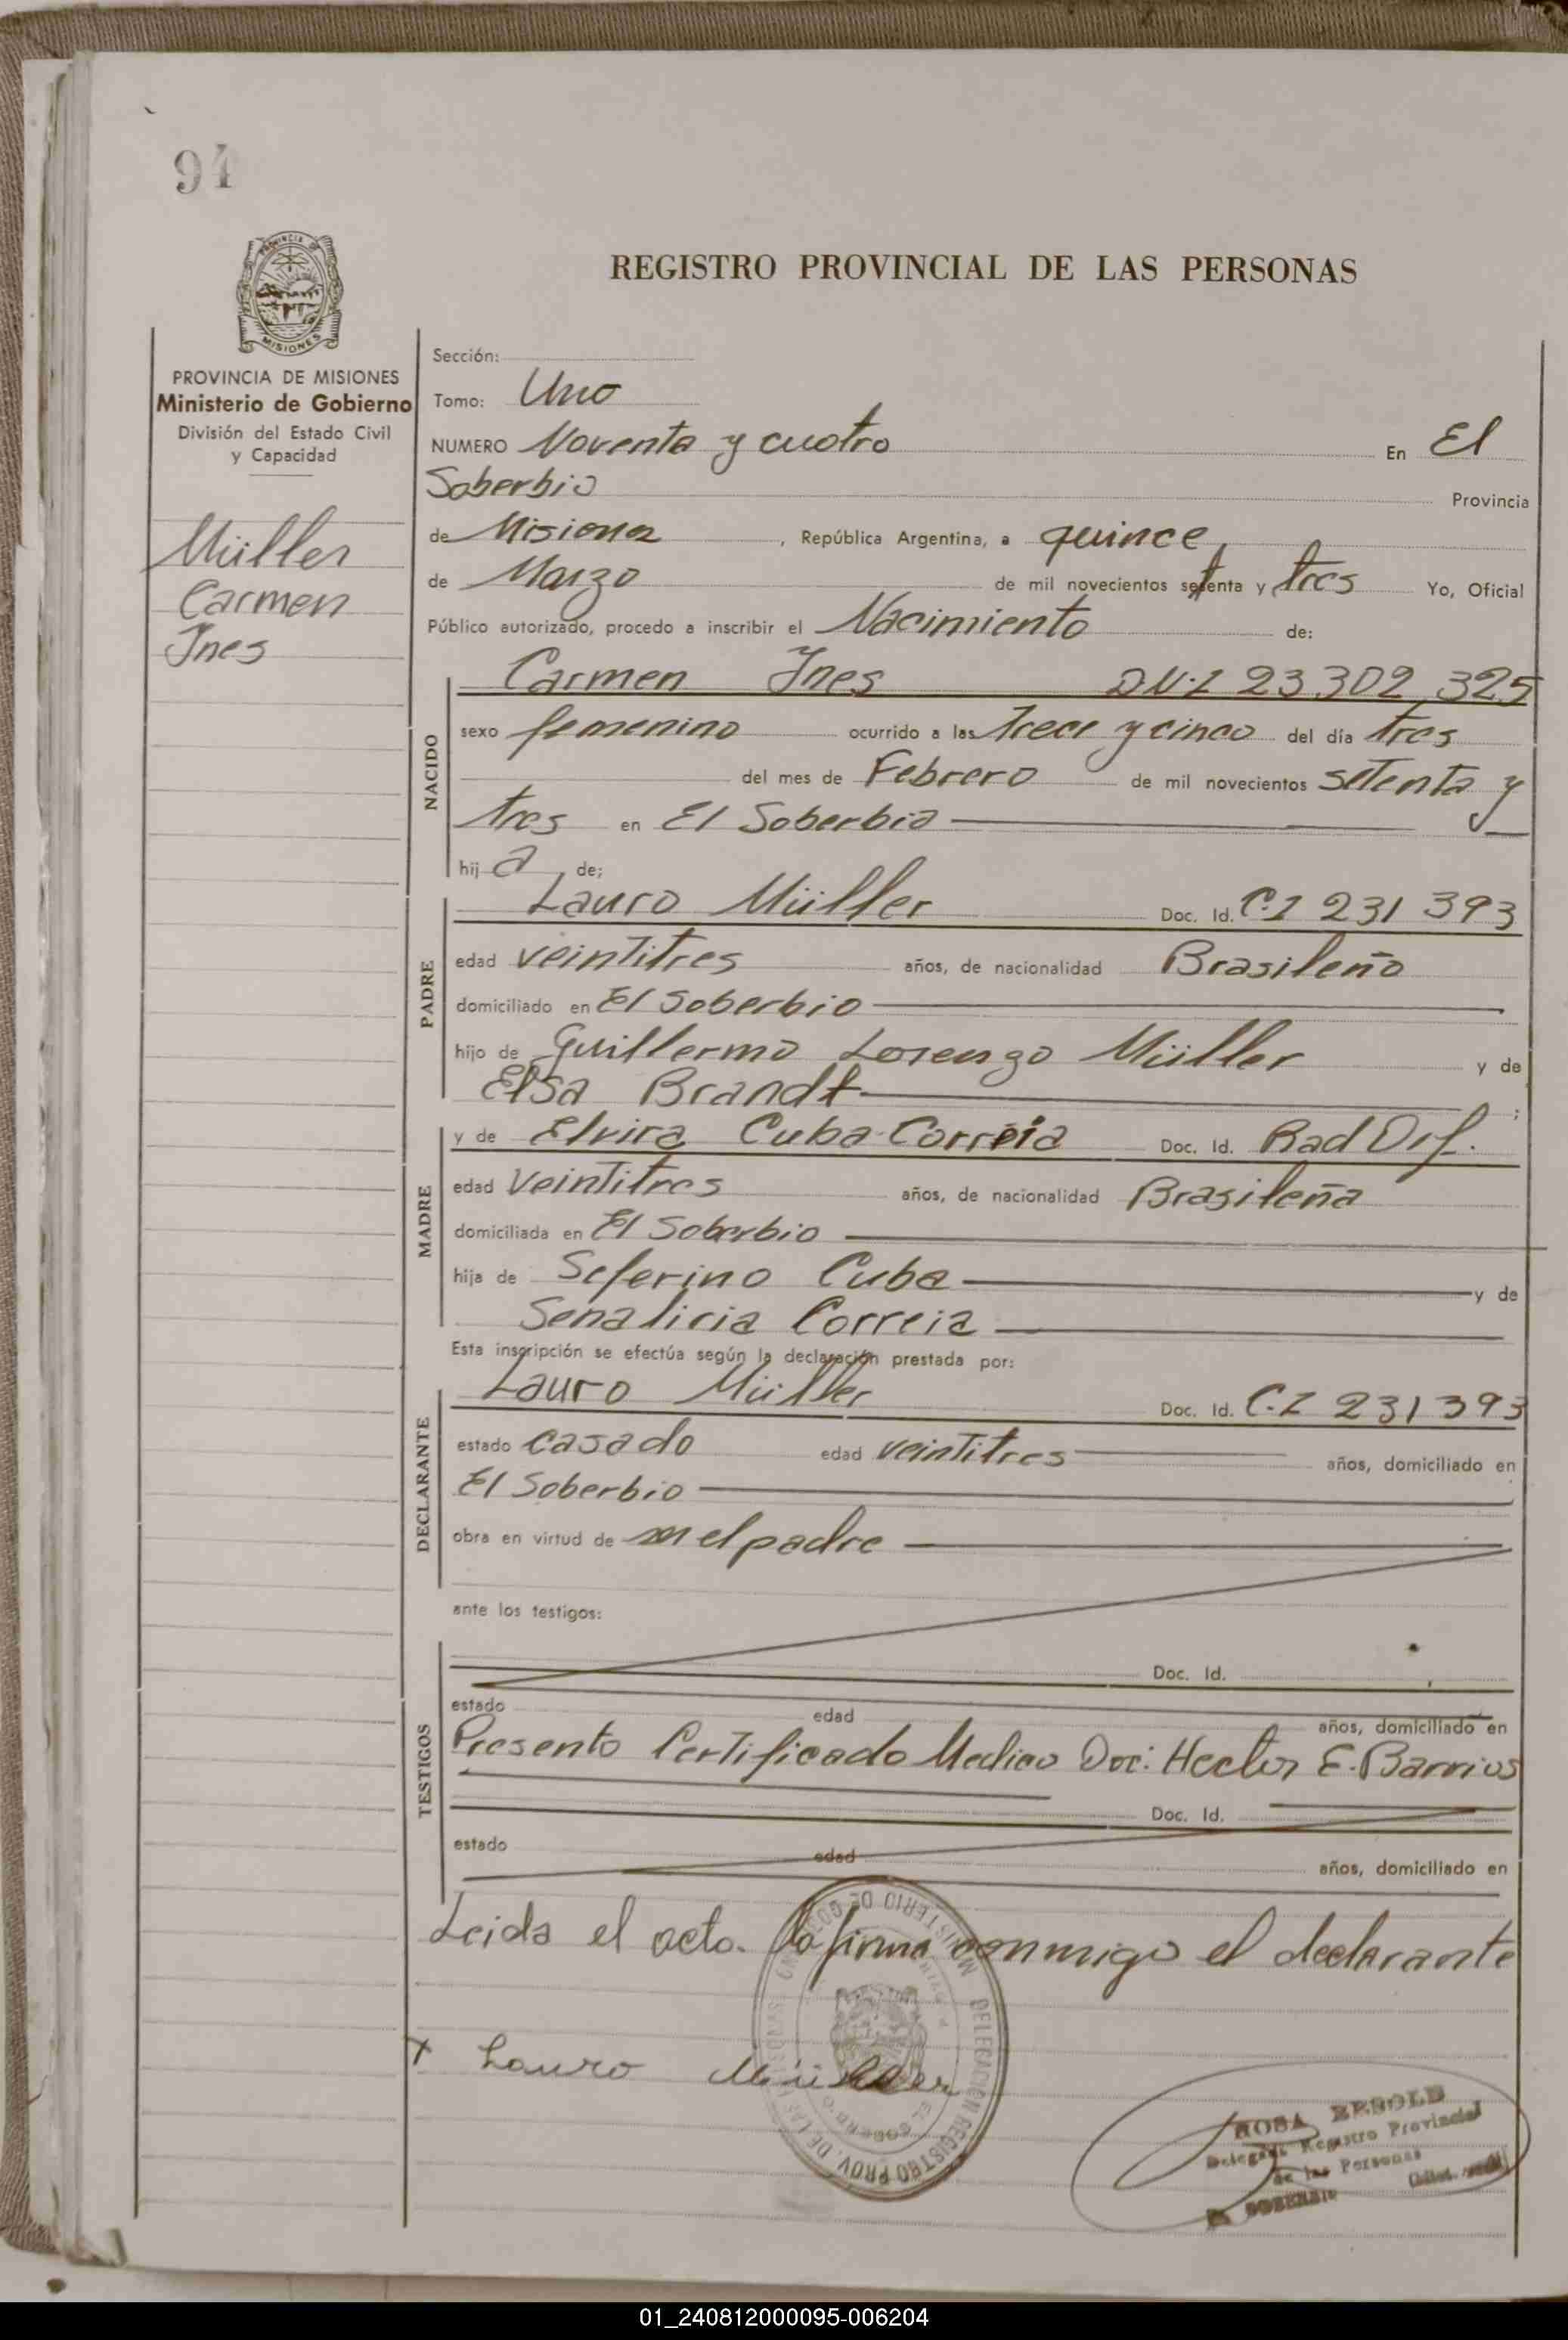 94
PROVINCIA DE
MISIONES
PROVINCIA DE MISIONES
Ministerio de Gobierno
División del Estado Civil
y Capacidad
Müller
Carmen
Ines
REGISTRO PROVINCIAL DE LAS PERSONAS
Sección:
Tomo: Uno
NUMERO Noventa y cuatro En El
Soberbio Provincia
de Misiones, República Argentina, a quince
de Marzo de mil novecientos setenta y tres Yo, Oficial
Público autorizado, procedo a inscribir el Nacimiento de:
NACIDO
Carmen Ines D.N.I 23.302.325
sexo femenino ocurrido a las trece y cinco del día tres
del mes de Febrero de mil novecientos setenta y
tres en El Soberbio
hij a de;
PADRE
Lauro Müller Doc. Id. C.I 231 393
edad veintitres años, de nacionalidad Brasileño
domiciliado en El Soberbio
hijo de Guillermo Lorenzo Müller y de
Elsa Brandt ;
MADRE
y de Elvira Cuba Correia Doc. Id. Rad Def.
edad veintitres años, de nacionalidad Brasileña
domiciliada en El Soberbio
hija de Seferino Cuba y de
Senalicia Correia
Esta inscripción se efectúa según la declaración prestada por:
DECLARANTE
Lauro Müller Doc. Id. C.I 231 393
estado casado edad veintitres años, domiciliado en
El Soberbio
obra en virtud de el padre
ante los testigos:
TESTIGOS
Doc. Id.
estado edad años, domiciliado en
Presento Certificado Medico Doc: Hector E. Barrios
Doc. Id.
estado edad años, domiciliado en
Leida el acta. la firma conmigo el declarante
x Lauro Müller
MINISTERIO DE GOBIERNO
DELEGACION REGISTRO PROV. DE LAS PERSONAS
EL SOBERBIO
ROSA
Delegada Registro Provincial
de las Personas
EL SOBERBIO
01_240812000095-006204